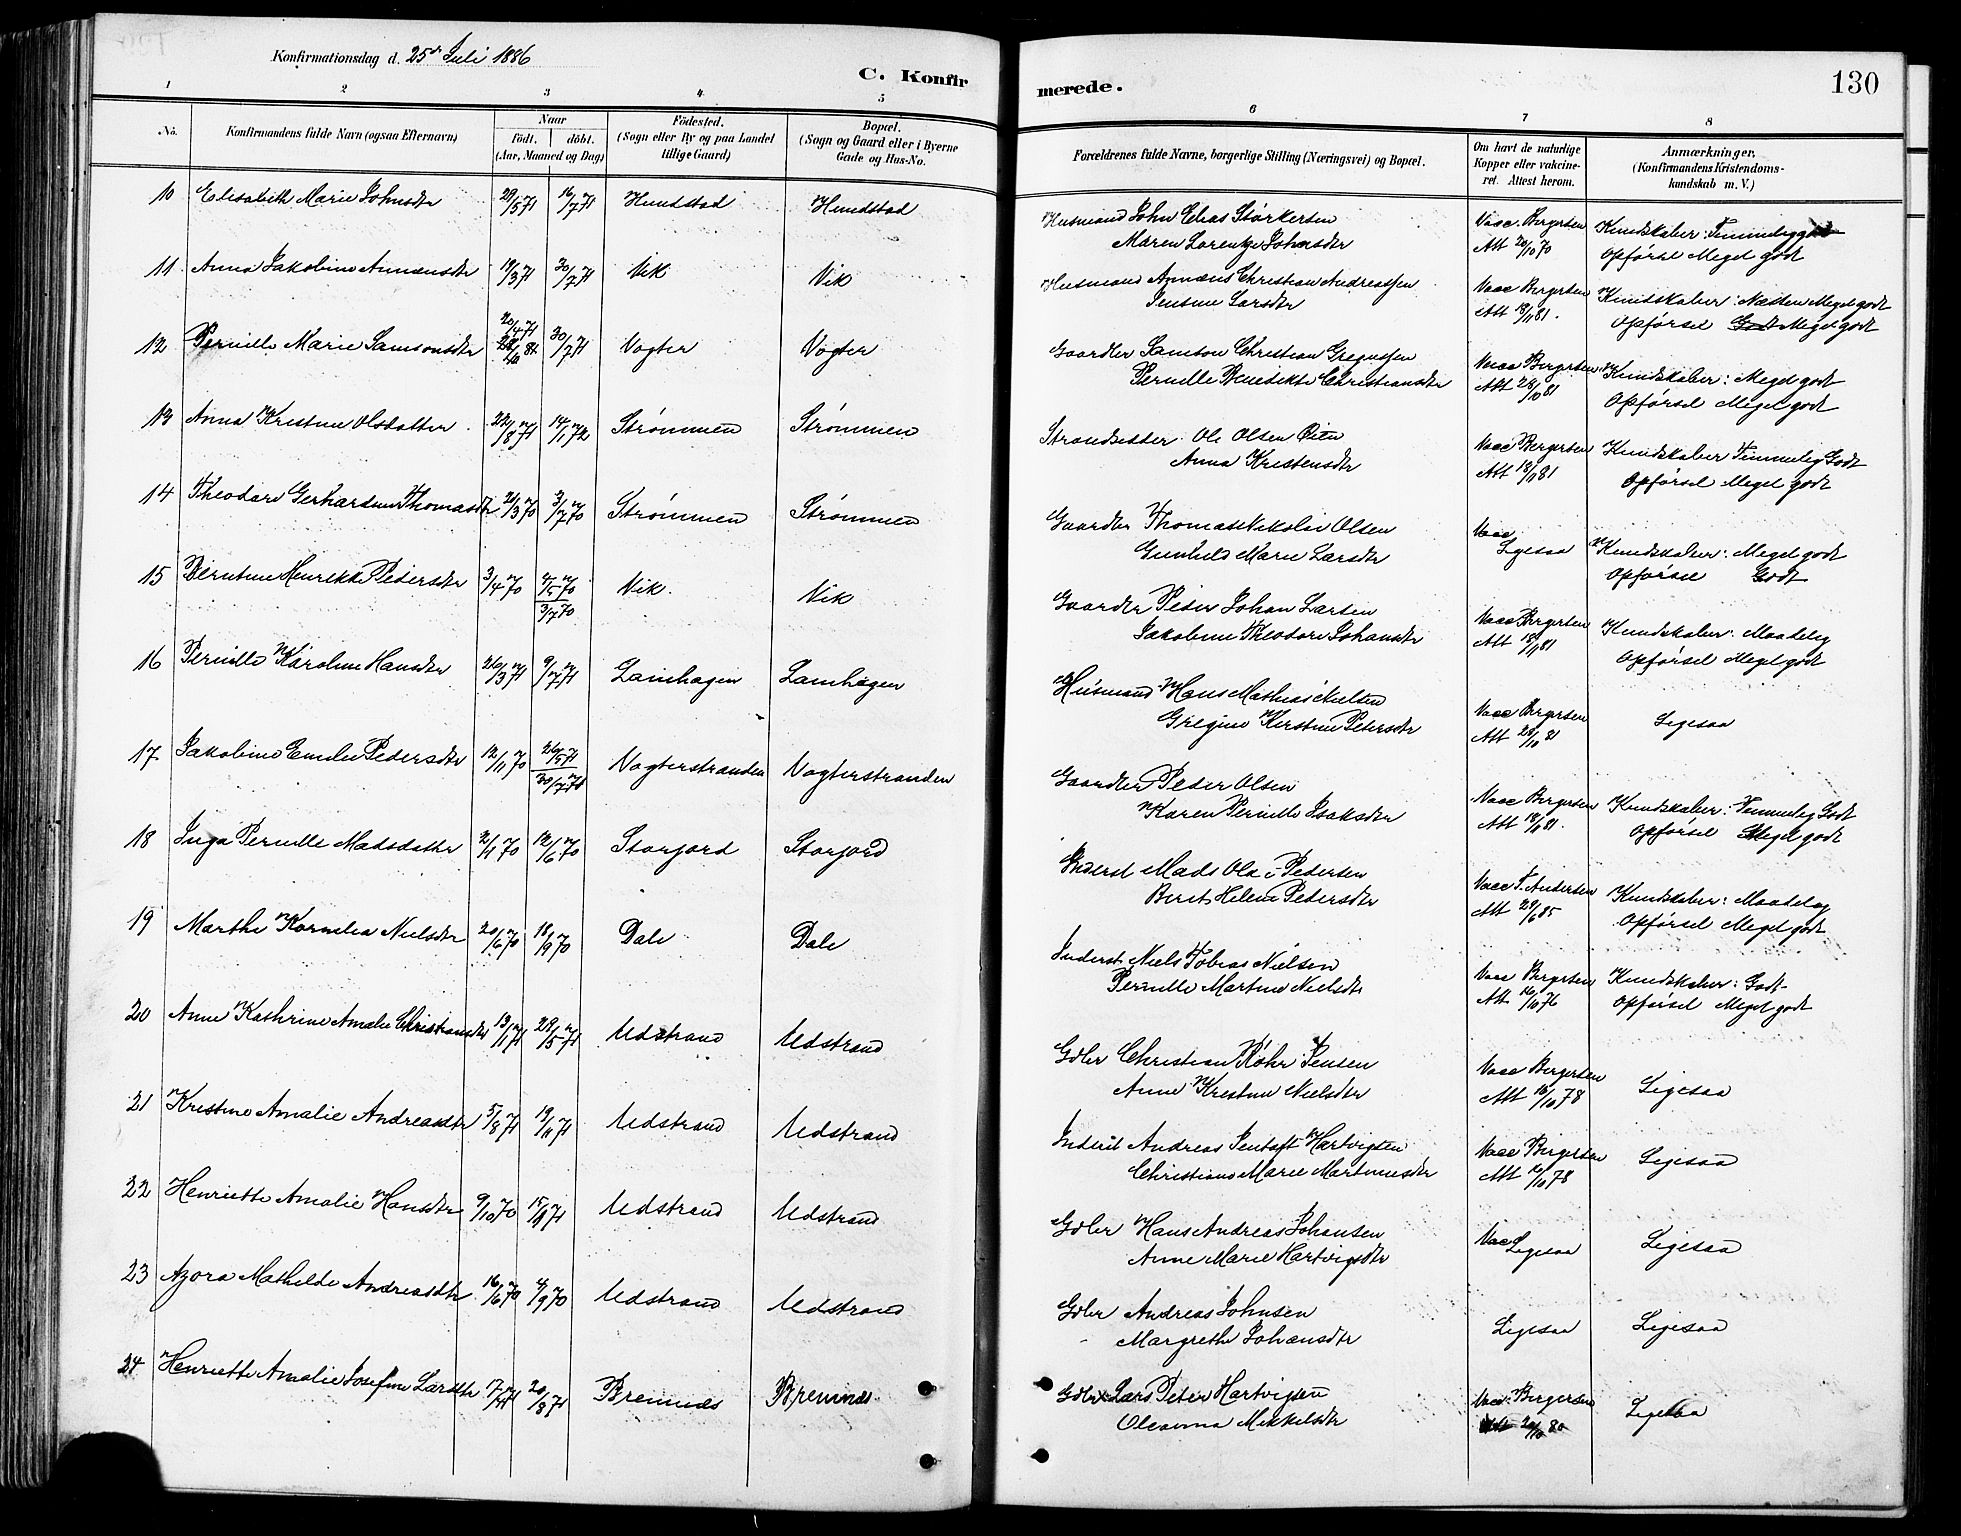 Konfirmationsdag d. 25de Juli 1886
C. Konfirmerede.
130
1 2 3 4 5 6 7 8
No. Konfirmandens fulde Navn (ogsaa Efternavn) Naar født. døbt. (Aar, Maaned og Dag) Fødested. (Sogn eller By og paa Landet tillige Gaard) Bopæl. (Sogn og Gaard eller i Byerne Gade og Hus-No. Forældrenes fulde Navne, borgerlige Stilling (Næringsvei) og Bopæl. Om havt de naturlige Kopper eller vakcineret. Attest herom. Anmærkninger, (Konfirmandens Kristendomskundskab m. V.)
10 Elisabeth Marie Johnsdtr 29/5 71 16/7 71 Hundstad Hundstad Husmand John Elias Størkersen Vacc. Bergersen Kundskaber: Temmelig godt
Maren Lorentze Johnsdtr Att 20/10 70 Opførsel Meget godt
11 Anna Jakobine Annæusdtr 19/3 71 30/7 71 Vik Vik Husmand Annæus Christian Andreassen Vacc Bergersen Kundskaber: Næsten Meget godt
Jensine Larsdtr Att 18/11 81. Opførsel Godt Meget godt
12 Pernille Marie Samsonsdtr 20/4 71 30/7 71 Vogter Vogter Gaardbr Samson Christian Gregussen Vacc Bergersen Kundskaber: Meget godt
Pernille Benedikte Christiansdtr Att 28/10 81 Opførsel Meget godt
13 Anna Kristine Olsdatter 22/8 71 14/1 72 Strømmen Strømmen Strandsidder Ole Olsen Øien Vacc Bergersen Kundskaber Temmelig Godt
Anna Kristensdtr Att 18/11 81 Opførsel Meget godt
14 Theodore Gerhardine Thomasdtr 20/3 70 3/7 70 Strømmen Strømmen Gaardbr Thomas Nikolai Olsen Vacc Ligesaa Kundskaber: Meget godt
Gunhild Marie Larsdtr Opførsel Godt
15 Berntine Henrikke Pedersdtr 3/4 70 /5 70 3/7 70 Vik Vik Gaardbr Peder Johan Larsen Vacc Bergersen Kundskaber: Maadelig
Jakobine Theodore Johansdtr Att 18/11 81 Opførsel Meget godt
16 Pernille Karoline Hansdtr 20/3 71 9/7 71 Lamhagen Lamhagen Husmand Hans Mathias Nielsen Vacc Bergersen Ligesaa
Gregine Kirstine Petersdtr Att 28/10 81
17 Jakobine Emilie Pedersdtr 12/11 70 26/5 71 30/7 71 Vogterstranden Vogterstranden Gaardbr Peder Olsen Vacc Bergersen Kundskaber: Temmelig Godt
Karen Pernille Isaksdtr Att 18/11 81. Opførsel Meget godt
18 Inga Pernille Madsdatter 2/4 70 12/6 70 Storjord Storjord Inderst Mads Olai Pedersen Vacc T. Andersen Kundskaber: Maadelig
Berit Helene Pedersdtr Att 29/6 85 Opførsel Meget godt
19 Marthe Kornelia Nielsdtr 20/6 70 18/9 70 Dale Dale Inderst Niels Tobias Nielsen Vacc Bergersen Kundskaber: Godt
Pernille Martine Nielsdtr Att 16/10 76 Opførsel Meget godt
20 Anne Kathrine Amalie Christiansdtr 13/1 71 28/5 71 Udstrand Udstrand Gdbr Christian Røhr Jensen Vacc Bergersen Ligesaa
Anne Kristine Nielsdtr Att 16/10 78
21 Kristine Amalie Andreasdtr 5/8 71 19/11 71 Udstrand Udstrand Inderst Andreas Jentoft Hartvigsen Vacc Bergersen Ligesaa
Christiane Marie Martinusdtr Att 16/10 78
22 Henriette Amalie Hansdtr 9/10 70 Udstrand Udstrand Gdbr Hans Andreas Johansen Vacc Ligesaa Ligesaa
Anne Marie Hartvigsdtr
23 Azora Mathilde Andreasdtr 16/6 70 4/9 70 Udstrand Udstrand Gdbr Andreas Johnsen Ligesaa Ligesaa
Margrethe Johansdtr
24 Henriette Amalie Josefine Larsdtr 20/8 71 Bremnes Bremnes Gdbr Lars Peter Hartvigsen Vacc. Bergersen Ligesaa
Oleanna Mikkelsdtr Att 20/10 80